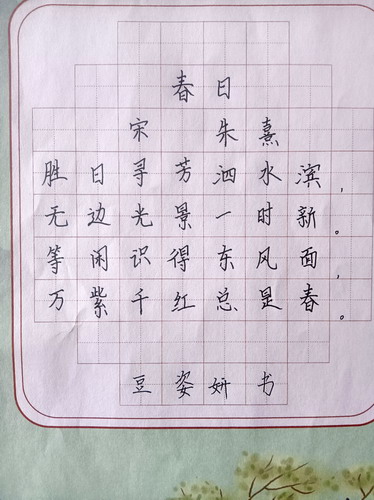 春日
宋 朱熹
胜日寻芳泗水滨，
无边光景一时新。
等闲识得东风面，
万紫千红总是春。
豆姿妍书